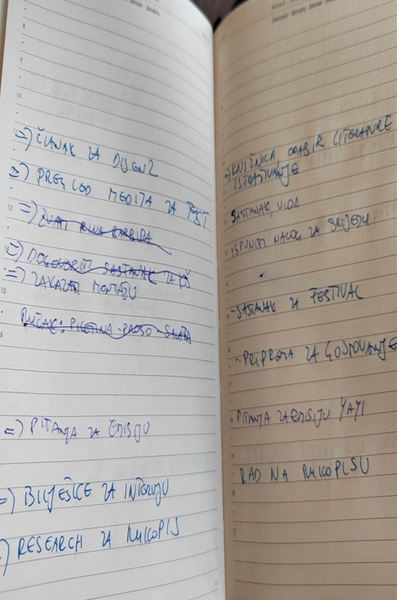 =) ČLANAK ZA DIJENZ
=) PREGLED MEDIJA ZA
=) ZVATI
=) DOGOVORITI SASTANAK ZA
=) ZAKAZATI MONTAŽU
RUČAK: PILETINA SALATA
=) PITANJA ZA EMISIJU
=) BILJEŠKE ZA INTERVJU
=) RESEARCH ZA RUKOPIS
KNJIŽNICA, ODABIR LITERATURE
ISTRAŽIVANJE
SASTANAK, VIDA
ISPUNITI NALOG ZA SRIJEDU
-SASTANAK ZA FESTIVAL
-PRIPREMA ZA GOSTOVANJE
PITANJA ZA EMISIJU YAYI
RAD NA RUKOPISU